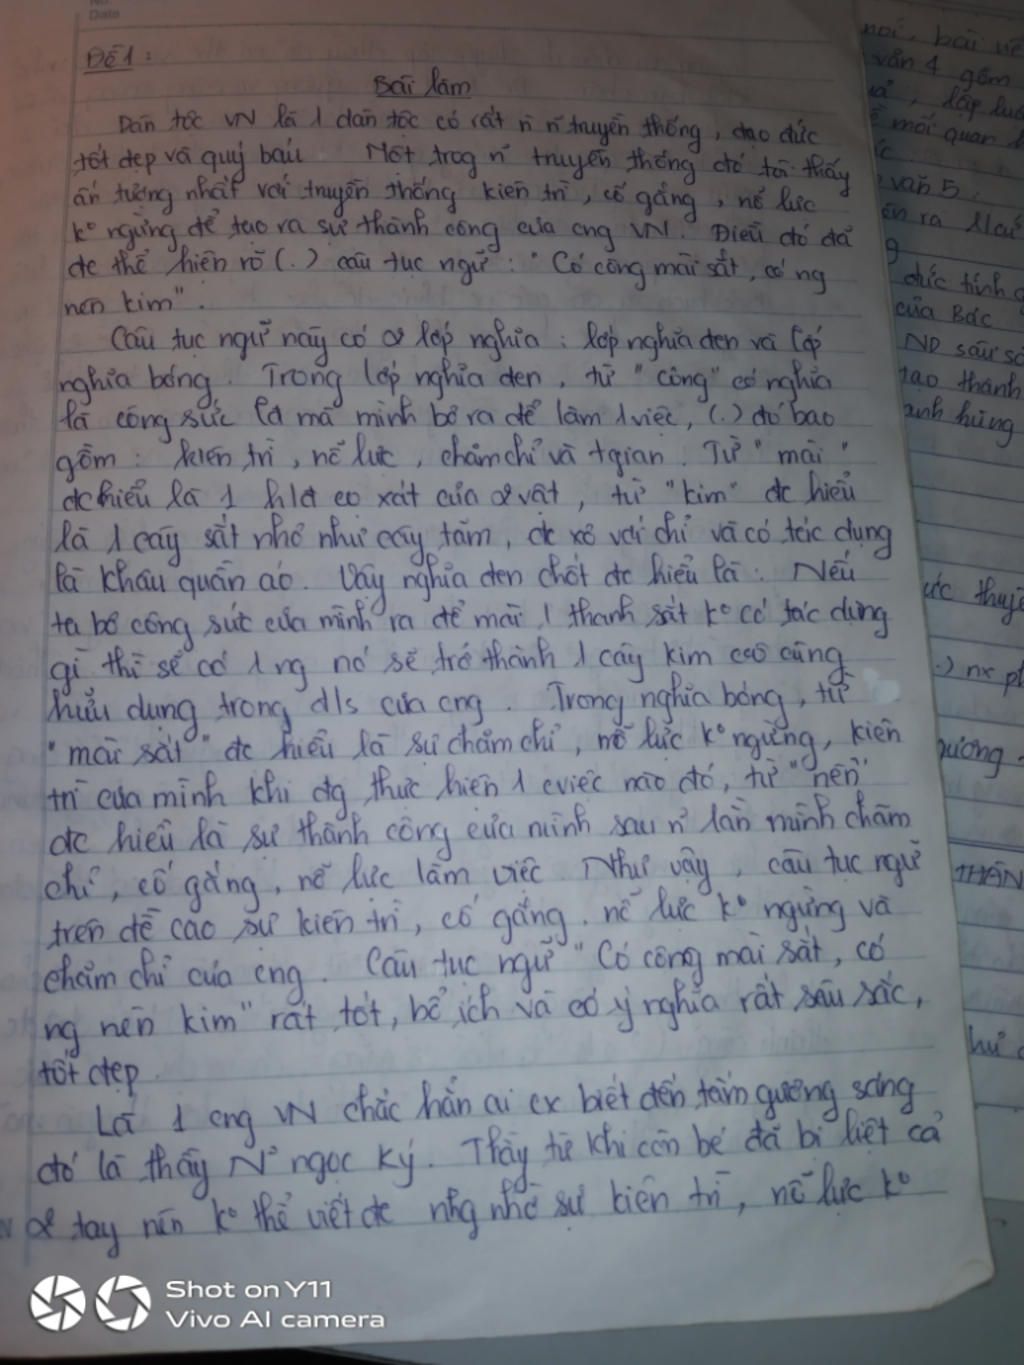 No.
Date
Đề 1:
Bài làm
Dân tộc VN là 1 dân tộc có rất n` n` truyền thống, đạo đức
tốt đẹp và quý báu. Một trog n~ truyền thống đó tôi thấy
ấn tượng nhất với truyền thống kiên trì, cố gắng, nổ lực
k° ngừng để tạo ra sự thành công của cng VN. Điều đó đã
đc thể hiện rõ (.) câu tục ngữ: "Có công mài sắt, có ng
nên kim".
Câu tục ngữ này có 2 lớp nghĩa: lớp nghĩa đen và lớp
nghĩa bóng. Trong lớp nghĩa đen, từ "công" có nghĩa
là công sức lđ mà mình bỏ ra để làm 1 việc, (.) đó bao
gồm: kiên trì, nổ lực, chăm chỉ và tgian. Từ "mài"
đc hiểu là 1 hđ cọ xát của 2 vật, từ "kim" đc hiểu
là 1 cây sắt nhỏ như cây tăm, đc xỏ với chỉ và có tác dụng
là khâu quần áo. Vậy nghĩa đen chốt đc hiểu là: Nếu
ta bỏ công sức của mình ra để mài 1 thanh sắt k° có tác dụng
gì thì sẽ có 1 ng nó sẽ trở thành 1 cây kim vô cùng
hữu dụng trong đ/s của cng. Trong nghĩa bóng, từ
"mài sắt" đc hiểu là sự chăm chỉ, nổ lực k° ngừng, kiên
trì của mình khi đg thực hiện 1 cviệc nào đó, từ "nên"
đc hiểu là sự thành công của mình sau n` lần mình chăm
chỉ, cố gắng, nổ lực làm việc. Như vậy, câu tục ngữ
trên đề cao sự kiên trì, cố gắng, nổ lực k° ngừng và
chăm chỉ của cng. Câu tục ngữ "Có công mài sắt, có
ng nên kim" rất tốt, bổ ích và có ý nghĩa rất sâu sắc,
tốt đẹp.
Là 1 cng VN chắc hẳn ai cx biết đến tấm gương sáng
đó là thầy N° ngọc Ký. Thầy từ khi còn bé đã bị liệt cả
2 tay nên k° thể viết đc nhg nhờ sự kiên trì, nổ lực k°
bài
văn 4 gồm
lập
mối quan
văn 5
đức tính
của Bác
ND sâu
tạo thành
anh hùng
nx
THÂN
Shot on Y11
Vivo AI camera